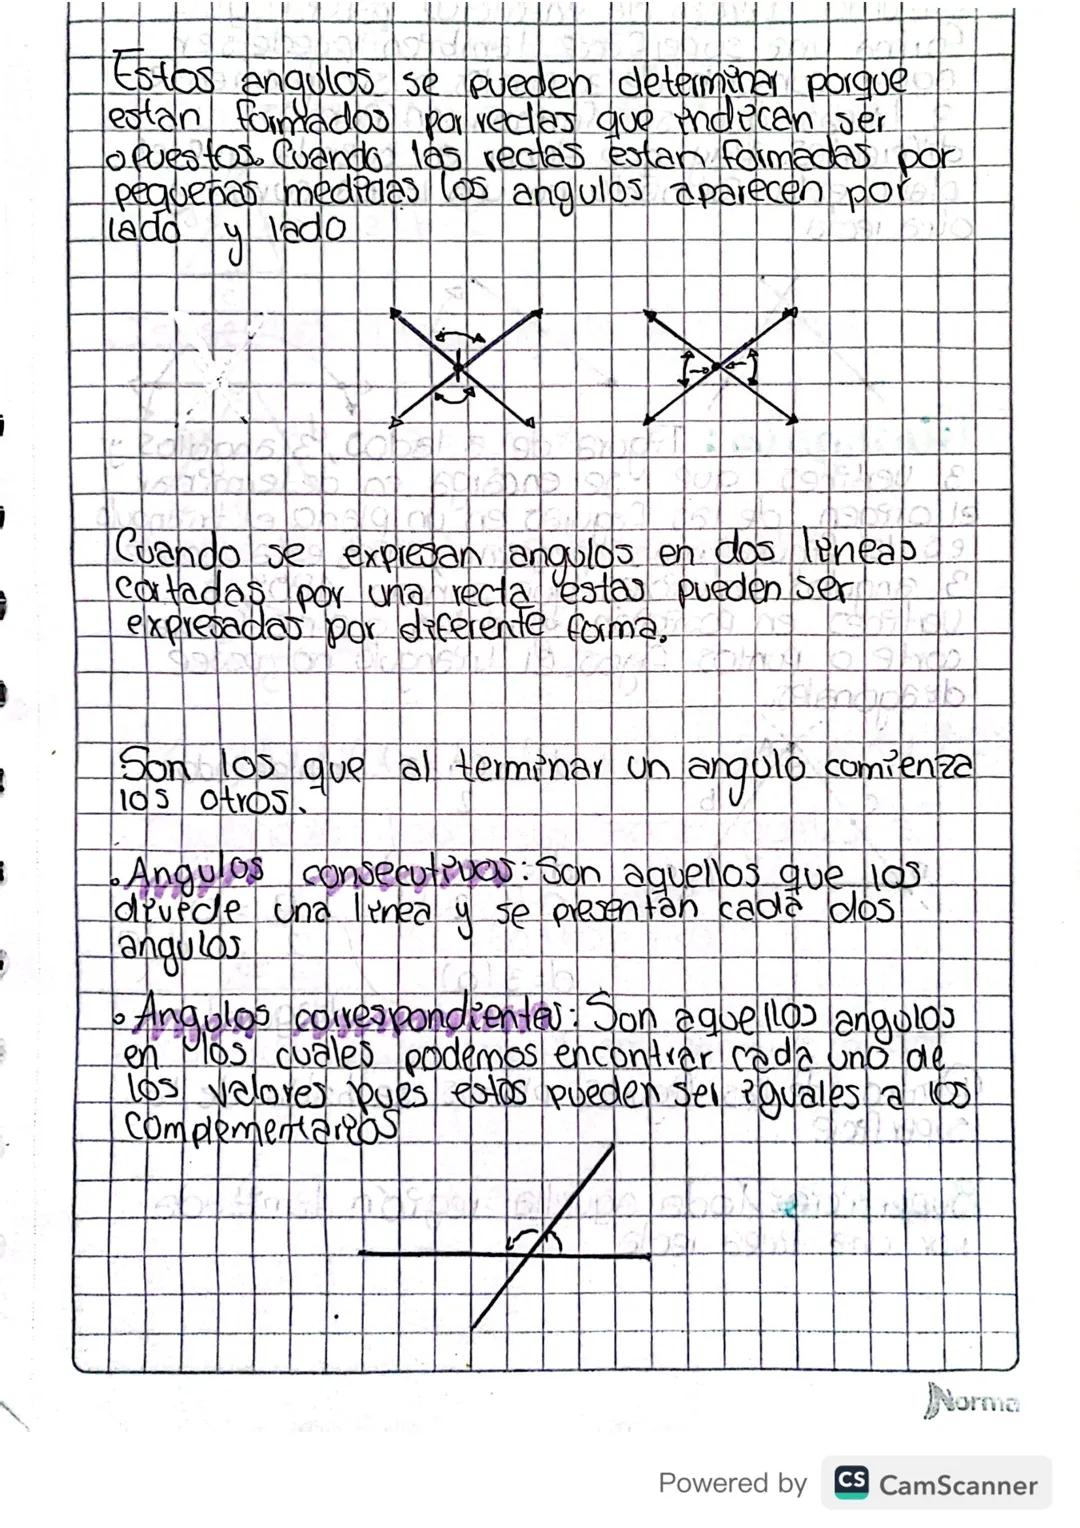 Estos angulos se pueden determinar porque
estan formados por rectas que indican ser
opuestos. Cuando las rectas estan formadas por
pequeñas medidas los angulos aparecen por
lado y lado
Cuando se expresan angulos en dos lineas
cortadas por una recta estas pueden ser
expresadas por diferente forma.
Son los que al terminar un angulo comienza
los otros.
• Angulos consecutivos: Son aquellos que los
divide una linea y se presentan cada dos
angulos
• Angulos correspondientes: Son aquellos angulos
en los cuales podemos encontrar cada uno de
los valores pues estos pueden ser iguales a los
complementarios
Norma
Powered by CS CamScanner